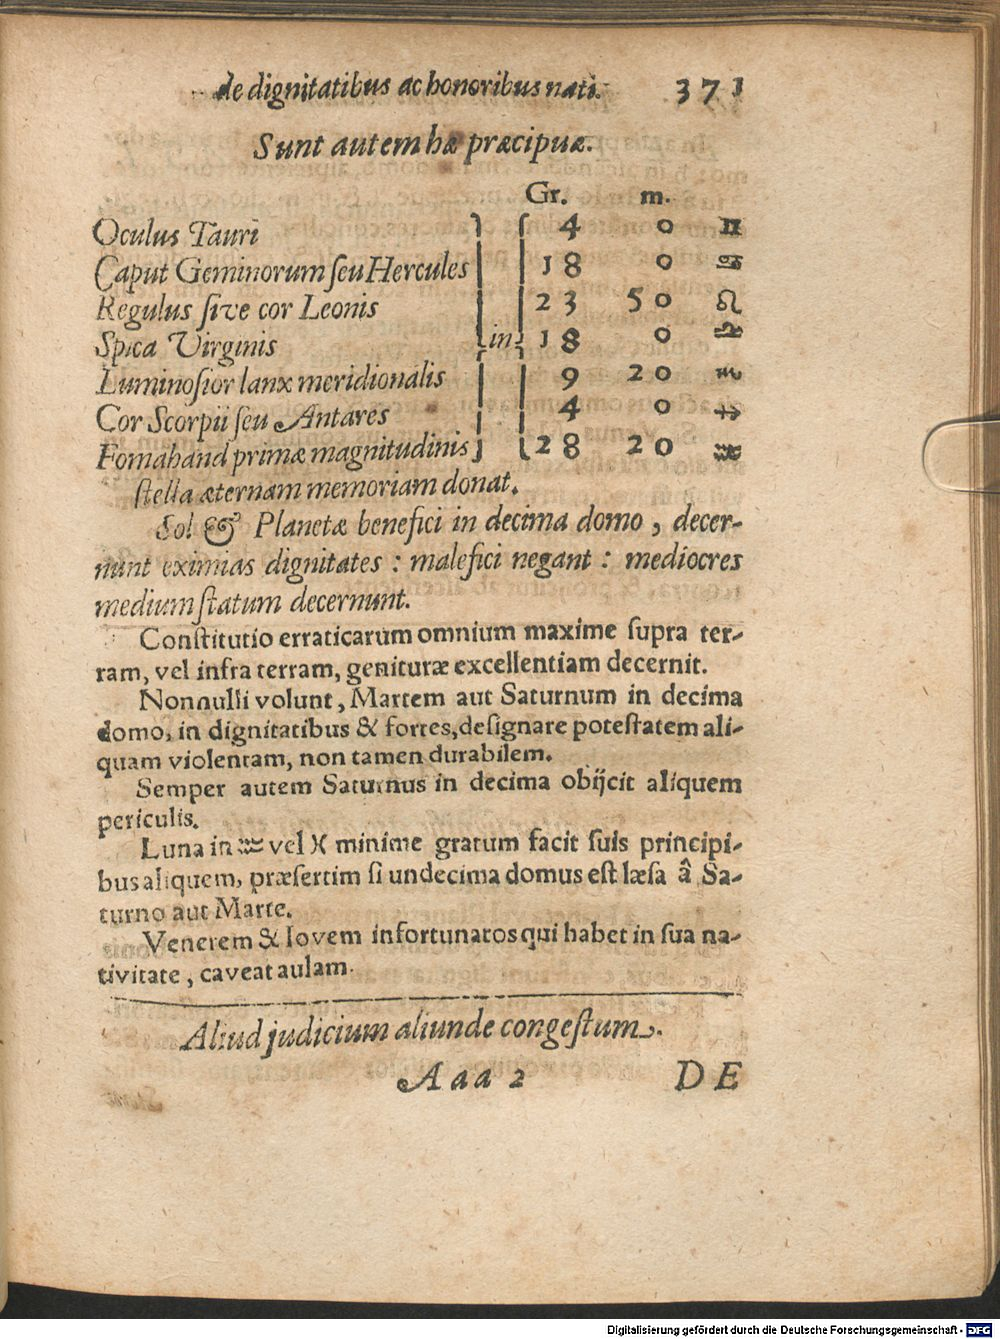 de dignitatibus ac honoribus nati. 371
Sunt autem hæ præcipuæ.
Gr. m.
Oculus Tauri 4 0 ♊
Caput Geminorum ſeu Hercules 18 0 ♋
Regulus ſive cor Leonis 23 50 ♌
Spica Virginis in 18 0 ♎
Luminoſior lanx meridionalis 9 20 ♏
Cor Scorpii ſeu Antares 4 0 ♐
Fomahand primæ magnitudinis 28 20 ♒
ſtella æternam memoriam donat.
Sol & Planetæ benefici in decima domo, decer-
nunt eximias dignitates : malefici negant : mediocres
medium ſtatum decernunt.
Conſtitutio erraticarum omnium maxime ſupra ter-
ram, vel infra terram, genituræ excellentiam decernit.
Nonnulli volunt, Martem aut Saturnum in decima
domo, in dignitatibus & fortes, deſignare poteſtatem ali-
quam violentam, non tamen durabilem.
Semper autem Saturnus in decima obijcit aliquem
periculis.
Luna in ♒ vel ♓ minime gratum facit ſuis principi-
bus aliquem, præſertim ſi undecima domus eſt læſa â Sa-
turno aut Marte.
Venerem & Iovem infortunatos qui habet in ſua na-
tivitate, caveat aulam.
Aliud judicium aliunde congeſtum.
Aaa 2 DE
Digitalisierung gefördert durch die Deutsche Forschungsgemeinschaft - DFG